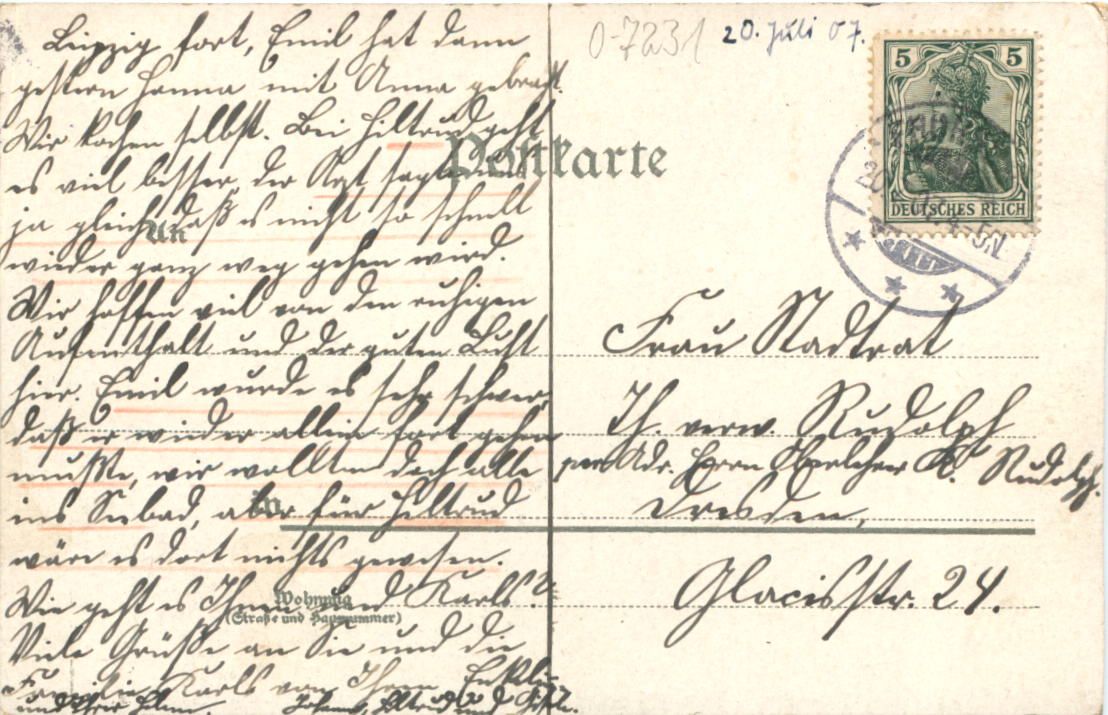 Leipzig fort, Emil hat dann
gestern Hanna mit Anna gebracht.
Wir kochen selbst. Bei Hiltrud geht
es viel besser, der Arzt sagte uns
ja gleich, daß es nicht so schnell
wieder ganz weg gehen wird.
Wir hoffen viel von dem ruhigen
Aufenthalt und der guten Luft
hier. Emil wurde es sehr schwer,
daß er wieder allein fort gehen
mußte, wir wollten doch alle
ins Seebad, aber für Hiltrud
wäre es dort nichts gewesen.
Wie geht es Ihnen und Karls?
Viele Grüße an Sie und die
Familie Karls von Ihren
und Ihrer
Hiltrud und
0-7231
20. Juli 07.
5 5
DEUTSCHES REICH
Postkarte
An
in
Wohnung
(Straße und Hausnummer)
Frau Stadtrat
Th. verw. Rudolph
per Adr. Herrn Oberlehrer K. Rudolph.
Dresden,
Glacisstr. 24.